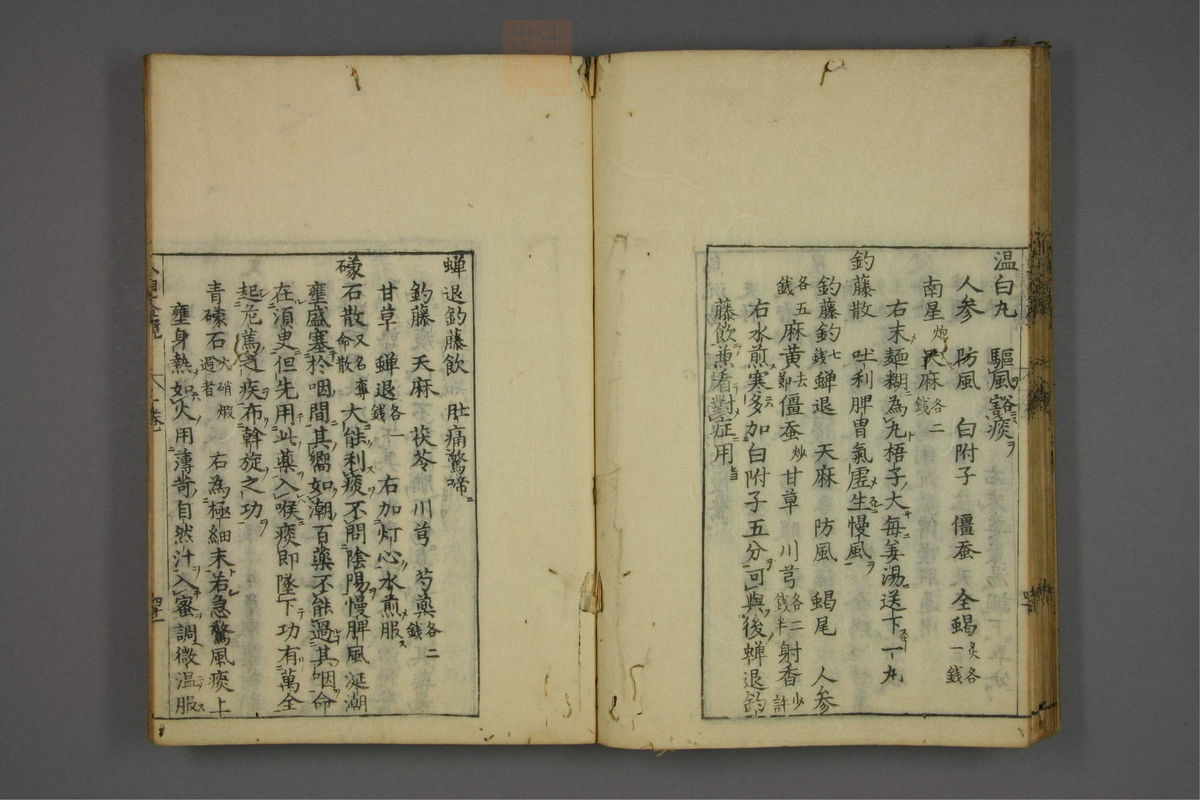 温白丸　驅風豁痰
人参　防風　白附子　僵蚕　全蝎炙各一錢
南星炮　天麻各二錢
右末麺糊為丸梧子大毎姜湯送下一丸
釣藤散　吐利脾胃氣虚生慢風
釣藤釣七錢蝉退　天麻　防風　蝎尾　人参
各五錢麻黄去節僵蚕炒甘草　川芎各二錢半射香少許
右水煎寒多加白附子五分可與後蝉退釣
藤飲兼看對症用
蝉退釣藤飲　肚痛驚啼
釣藤　天麻　茯苓　川芎　芍薬各二錢
甘草　蝉退各一錢　右加灯心水煎服
礞石散又名奪命散大能利痰不問陰陽慢脾風涎潮
壅盛塞於咽間其嚮如潮百薬不能過其咽命
在須臾但先用此薬入喉痰即墜下功有萬全
起危篤之疾布斡旋之功
青礞石火硝煅過者　右為極細末若急驚風痰上
壅身熱如火用薄荷自然汁入蜜調微温服